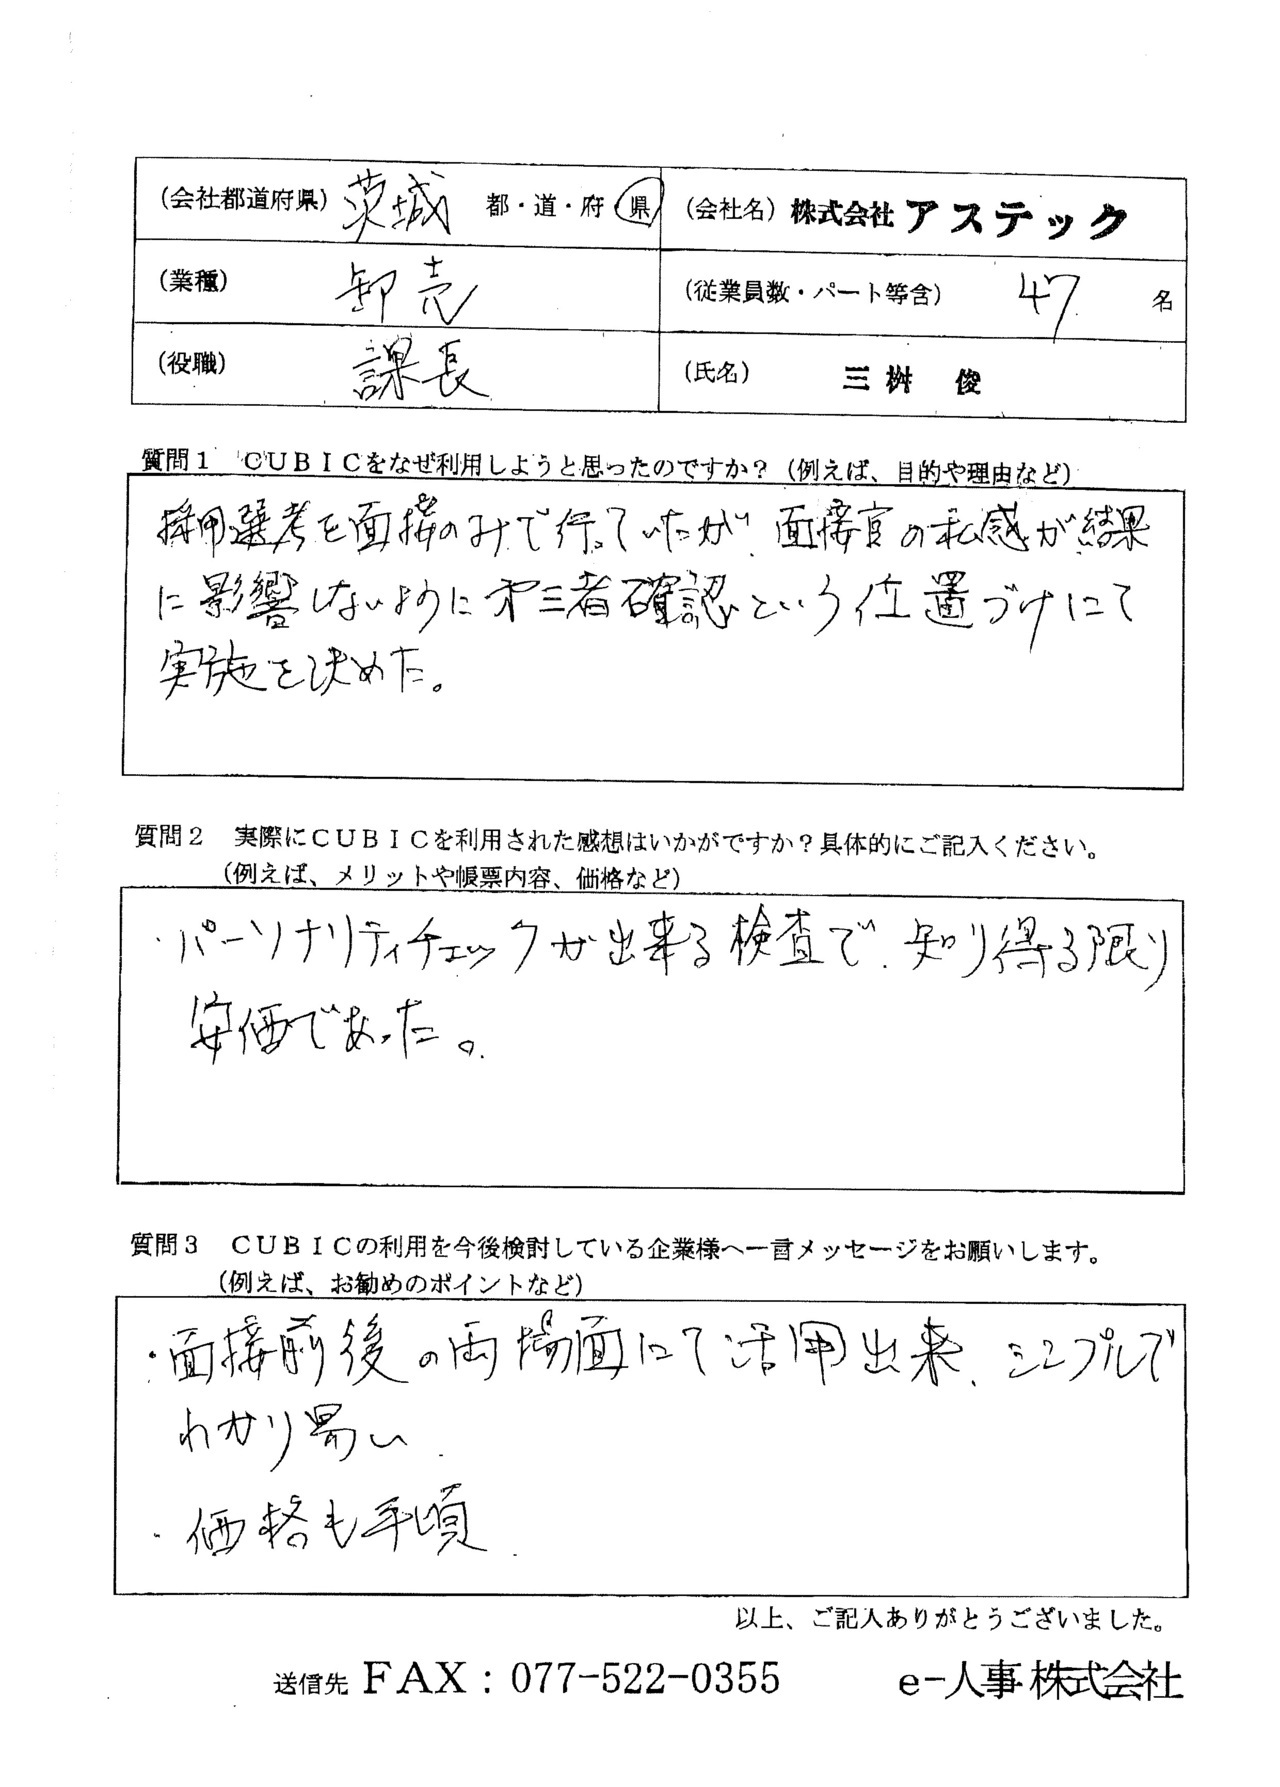 (会社都道府県) 茨城 都・道・府 県 (会社名) 株式会社 アステック
(業種) 卸売 (従業員数・パート等含) 47 名
(役職) 課長 (氏名) 三桝 俊
質問1 CUBICをなぜ利用しようと思ったのですか?(例えば、目的や理由など)
採用選考を面接のみで行っていたが、面接官の私感が結果
に影響しないように㐧三者確認という位置づけにて
実施を決めた。
質問2 実際にCUBICを利用された感想はいかがですか?具体的にご記入ください。
(例えば、メリットや帳票内容、価格など)
・パーソナリティチェックが出来る検査で、知り得る限り
安価であった。
質問3 CUBICの利用を今後検討している企業様へ一言メッセージをお願いします。
(例えば、お勧めのポイントなど)
・面接前後の両場面にて活用出来、シンプルで
わかり易い.
・価格も手頃.
以上、ご記入ありがとうございました。
送信先 FAX:077-522-0355 e-人事株式会社